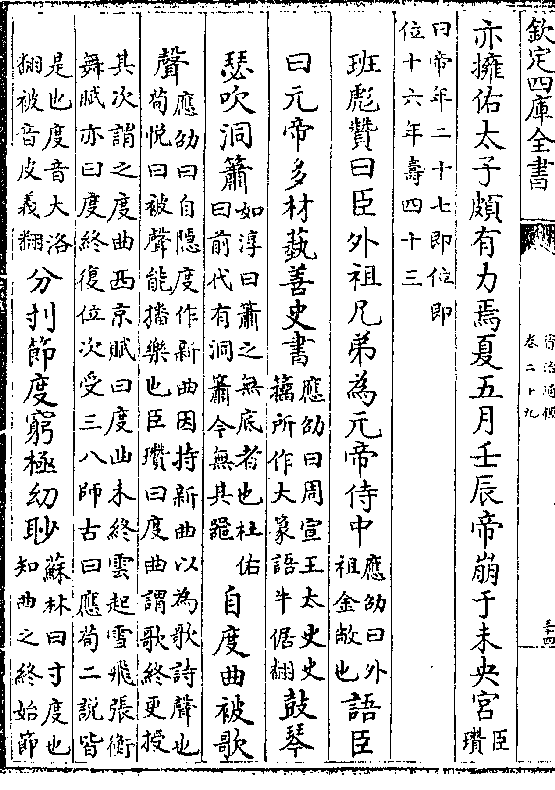 欽定四庫全書
資治通鑑
卷二十九
亦擁佑太子頗有力焉夏五月壬辰帝崩于未央宮臣瓚
曰帝年二十七即位即
位十六年壽四十三
班彪贊曰臣外祖兄弟為元帝侍中應劭曰外祖金敞也語臣
曰元帝多材藝善史書應劭曰周宣王太史史籀所作大篆語牛倨翻鼓琴
瑟吹洞簫如淳曰簫之無底者也杜佑曰前代有洞簫今無其器自度曲被歌
聲應劭曰自隱度作新曲因持新曲以為歌詩聲也荀悅曰被聲能播樂也臣瓚曰度曲謂歌終更授
其次謂之度曲西京賦曰度曲未終雲起雪飛張衡
舞賦亦曰度終復位次受三八師古曰應荀二說皆
是也度音大洛翻被音皮義翻分刌節度窮極幼眇蘇林曰寸度也知曲之終始節